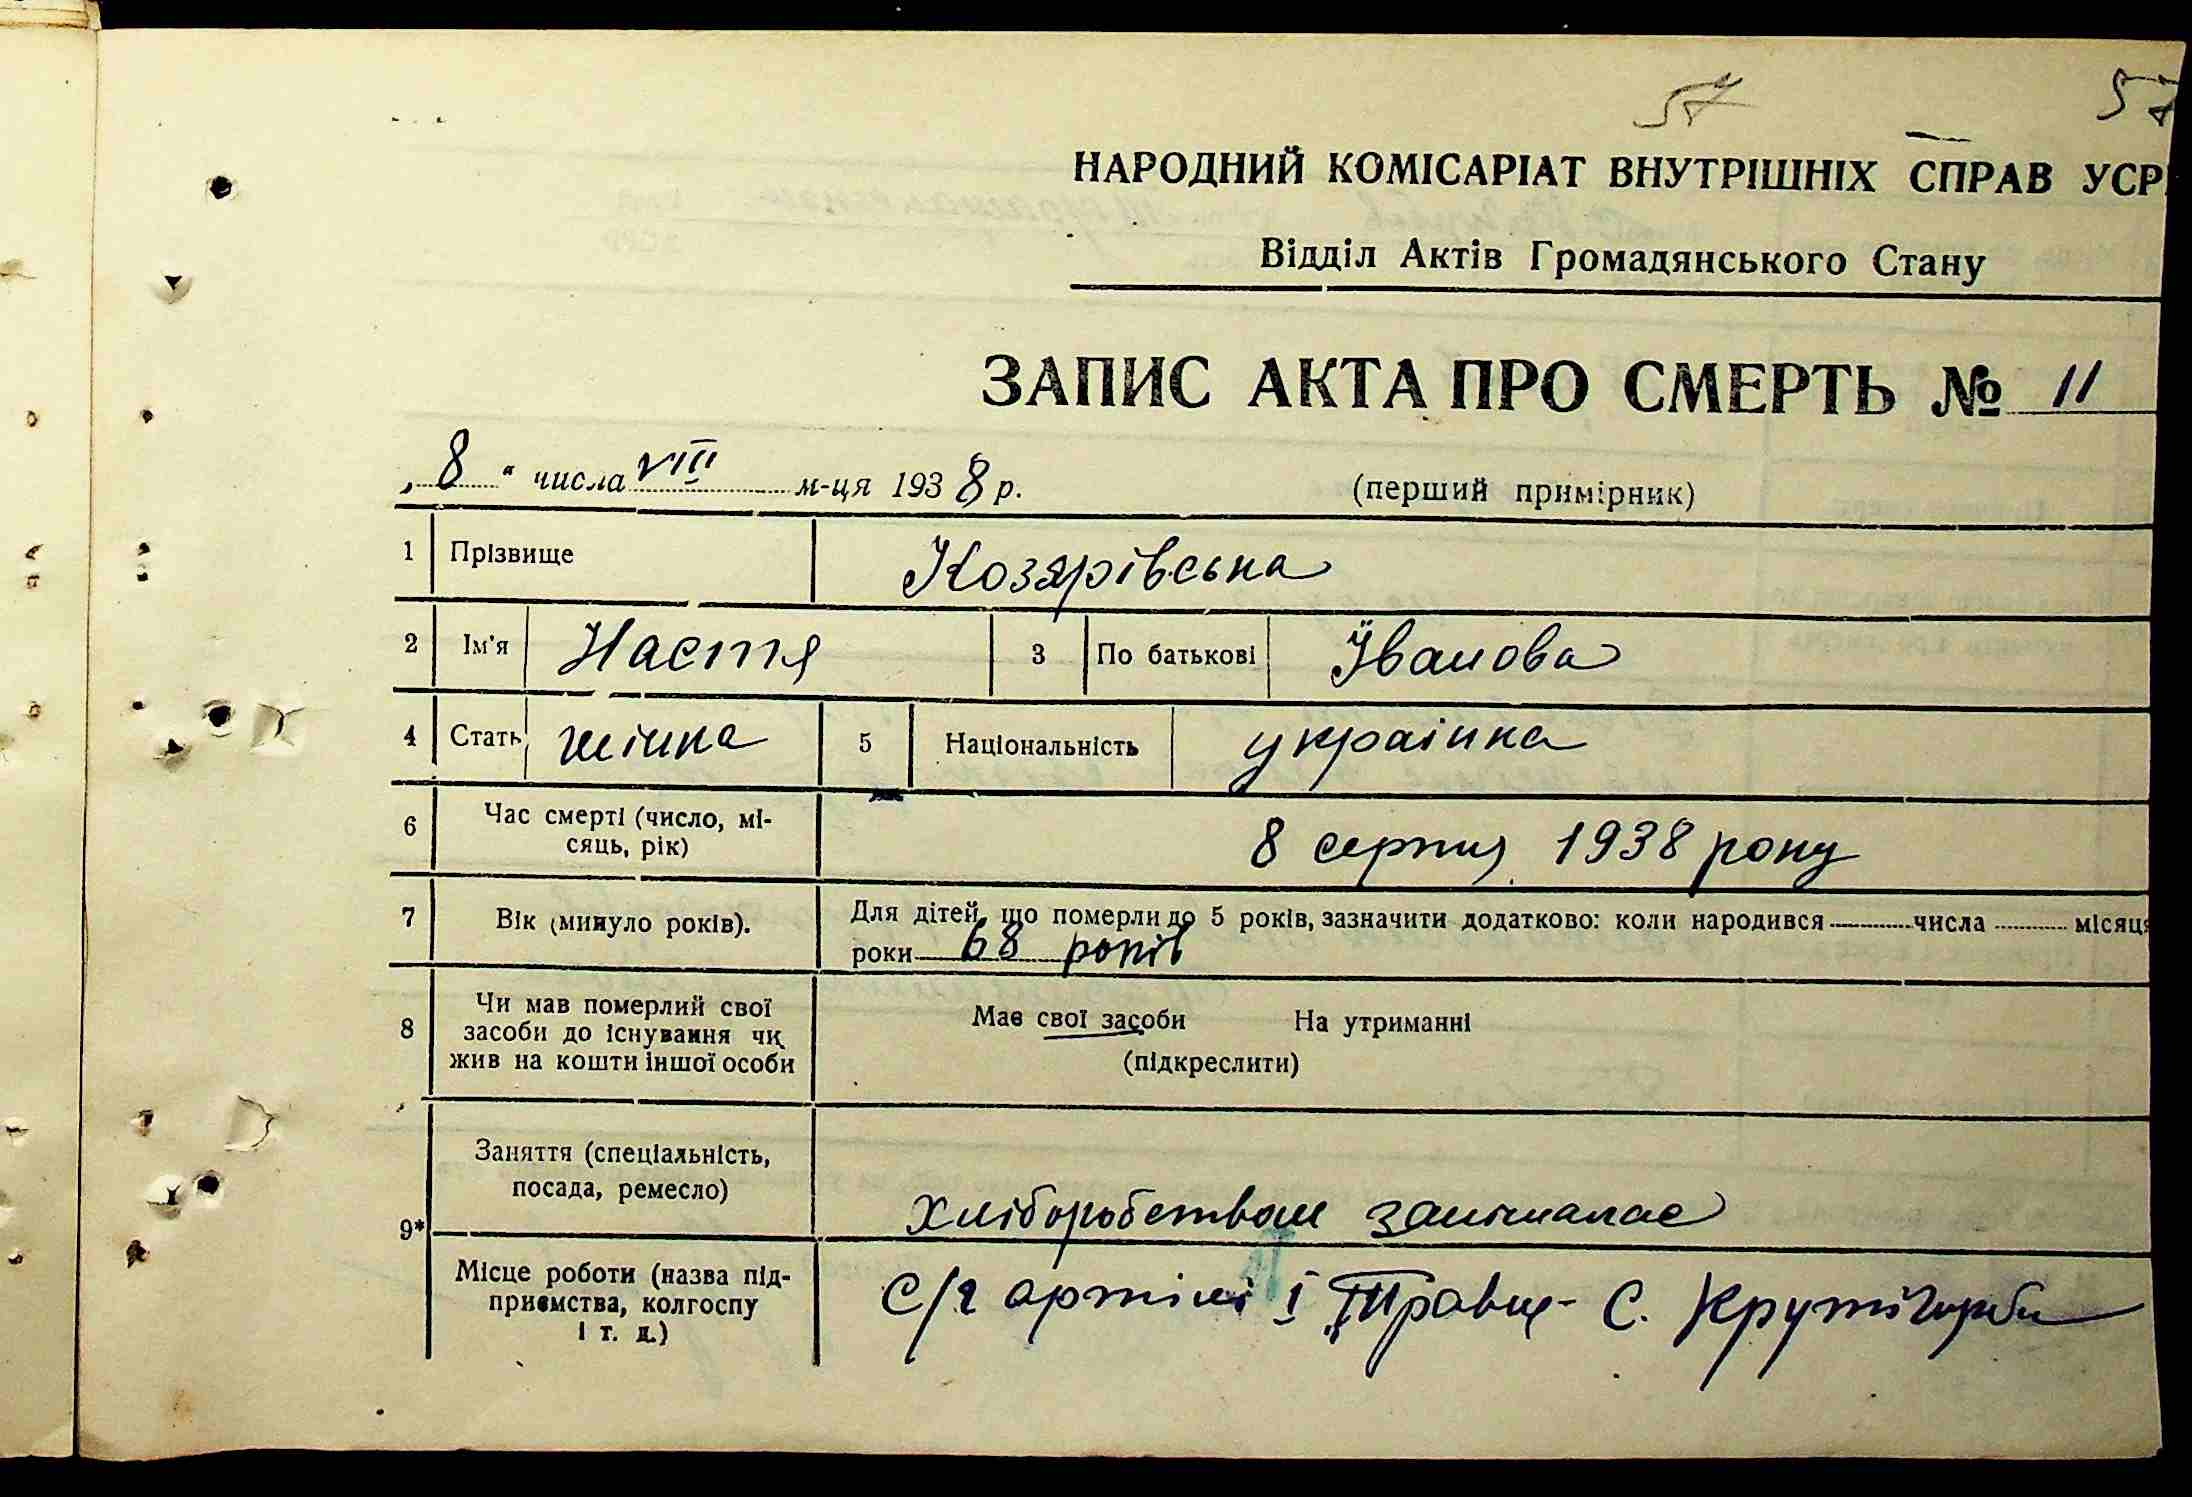 57 57
НАРОДНИЙ КОМІСАРІАТ ВНУТРІШНІХ СПРАВ УСР
Відділ Актів Громадянського Стану
ЗАПИС АКТА ПРО СМЕРТЬ № 11
„ 8 “ числа VIII м-ця 1938 р. (перший примірник)
1 Прізвище Козярівська
2 Ім'я Настя 3 По батькові Іванова
4 Стать жінка 5 Національність українка
6 Час смерті (число, мі-
сяць, рік) 8 серпня 1938 року
7 Вік (минуло років). Для дітей, що померли до 5 років, зазначити додатково: коли народився числа місяця
роки 68 років
8 Чи мав померлий свої
засоби до існування чи
жив на кошти іншої особи
Має свої засоби На утриманні
(підкреслити)
9* Заняття (спеціальність,
посада, ремесло) хліборобством займалас
Місце роботи (назва під-
приємства, колгоспу
і т. д.)
с/г артілі 1 Травня с.